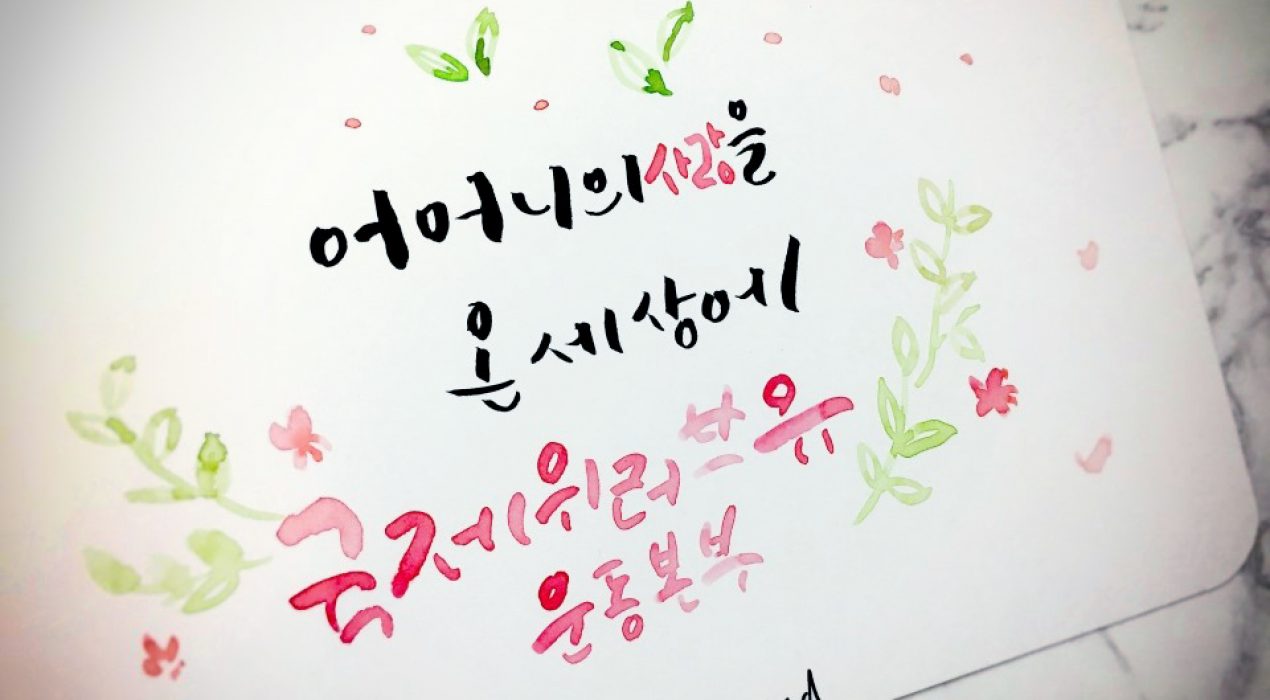 어머니의 사랑을
온 세상에
국제위러브유
운동본부